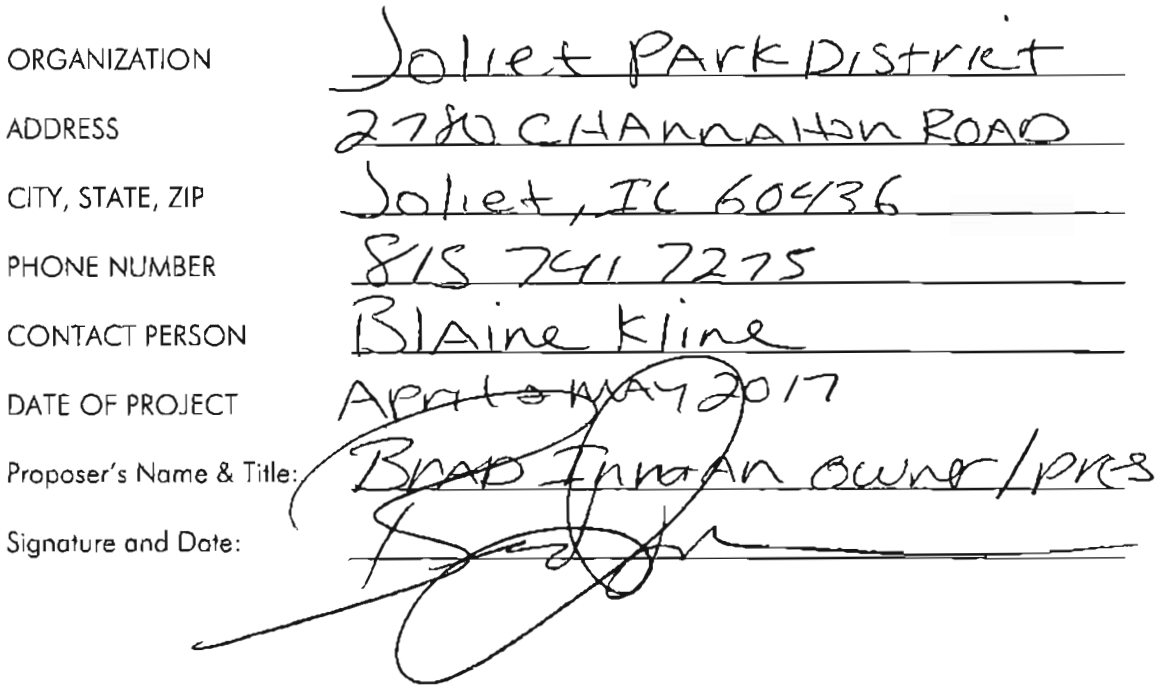 ORGANIZATION Joliet PArk District
ADDRESS 2780 CHAnnAHon ROAD
CITY, STATE, ZIP Joliet, IL 60436
PHONE NUMBER 815 741 7275
CONTACT PERSON BlAine Kline
DATE OF PROJECT April to MAY 2017
Proposer's Name & Title: BrAD InmAn owner/pres
Signature and Date: